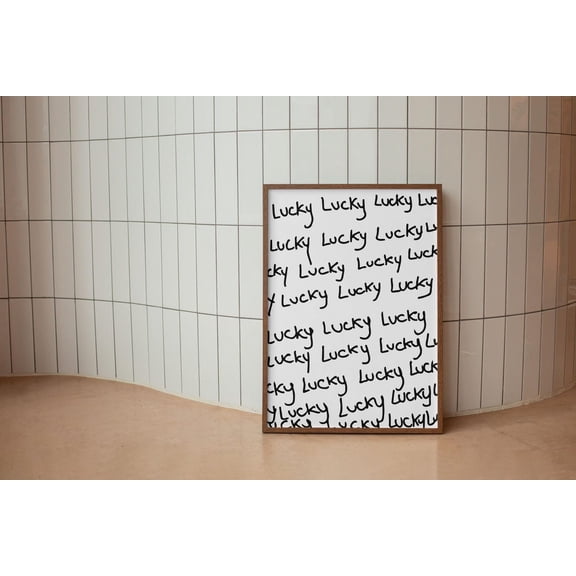 Lucky Lucky Lucky Luc
Lucky Lucky Lucky Lu
cky Lucky Lucky Lucky
y Lucky Lucky Lucky
Lucky Lucky Lucky
Lucky Lucky Lucky L
cky Lucky Lucky Lucky
y Lucky Lucky Lucky
ucky Lucky Lucky L